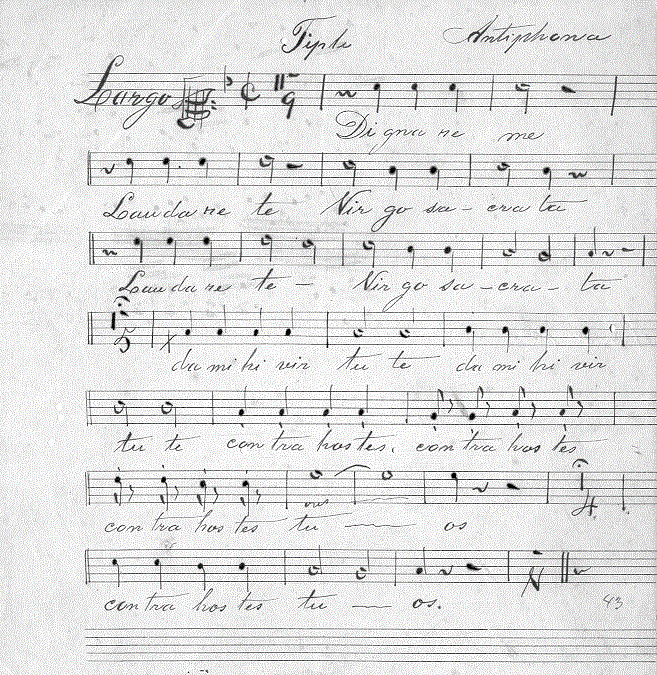 Tiple Antiphona
Largo
9
Dignare me
Laudare te Virgo sa-crata
Laudare te - Virgo sa-cra-ta
5
da mihi vir tu te da mi hi vir
tu te contra hostes. contra hostes
contra hostes tu os
4.
contra hostes tu os.
43